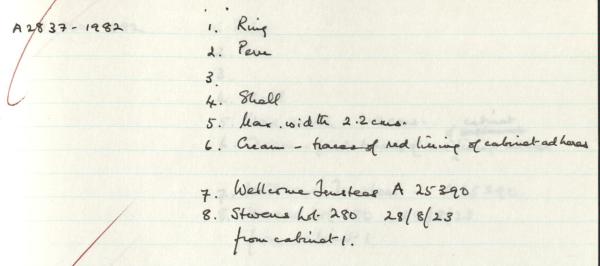 A2837-1982
1. Ring
2. Peru
3.
4. Shell
5. Max. width 2.2cms.
6. Cream - traces of red lining of cabinet adheres
7. Wellcome Trustees A 25390
8. Stevens Lot 280 28/8/23
from cabinet 1.